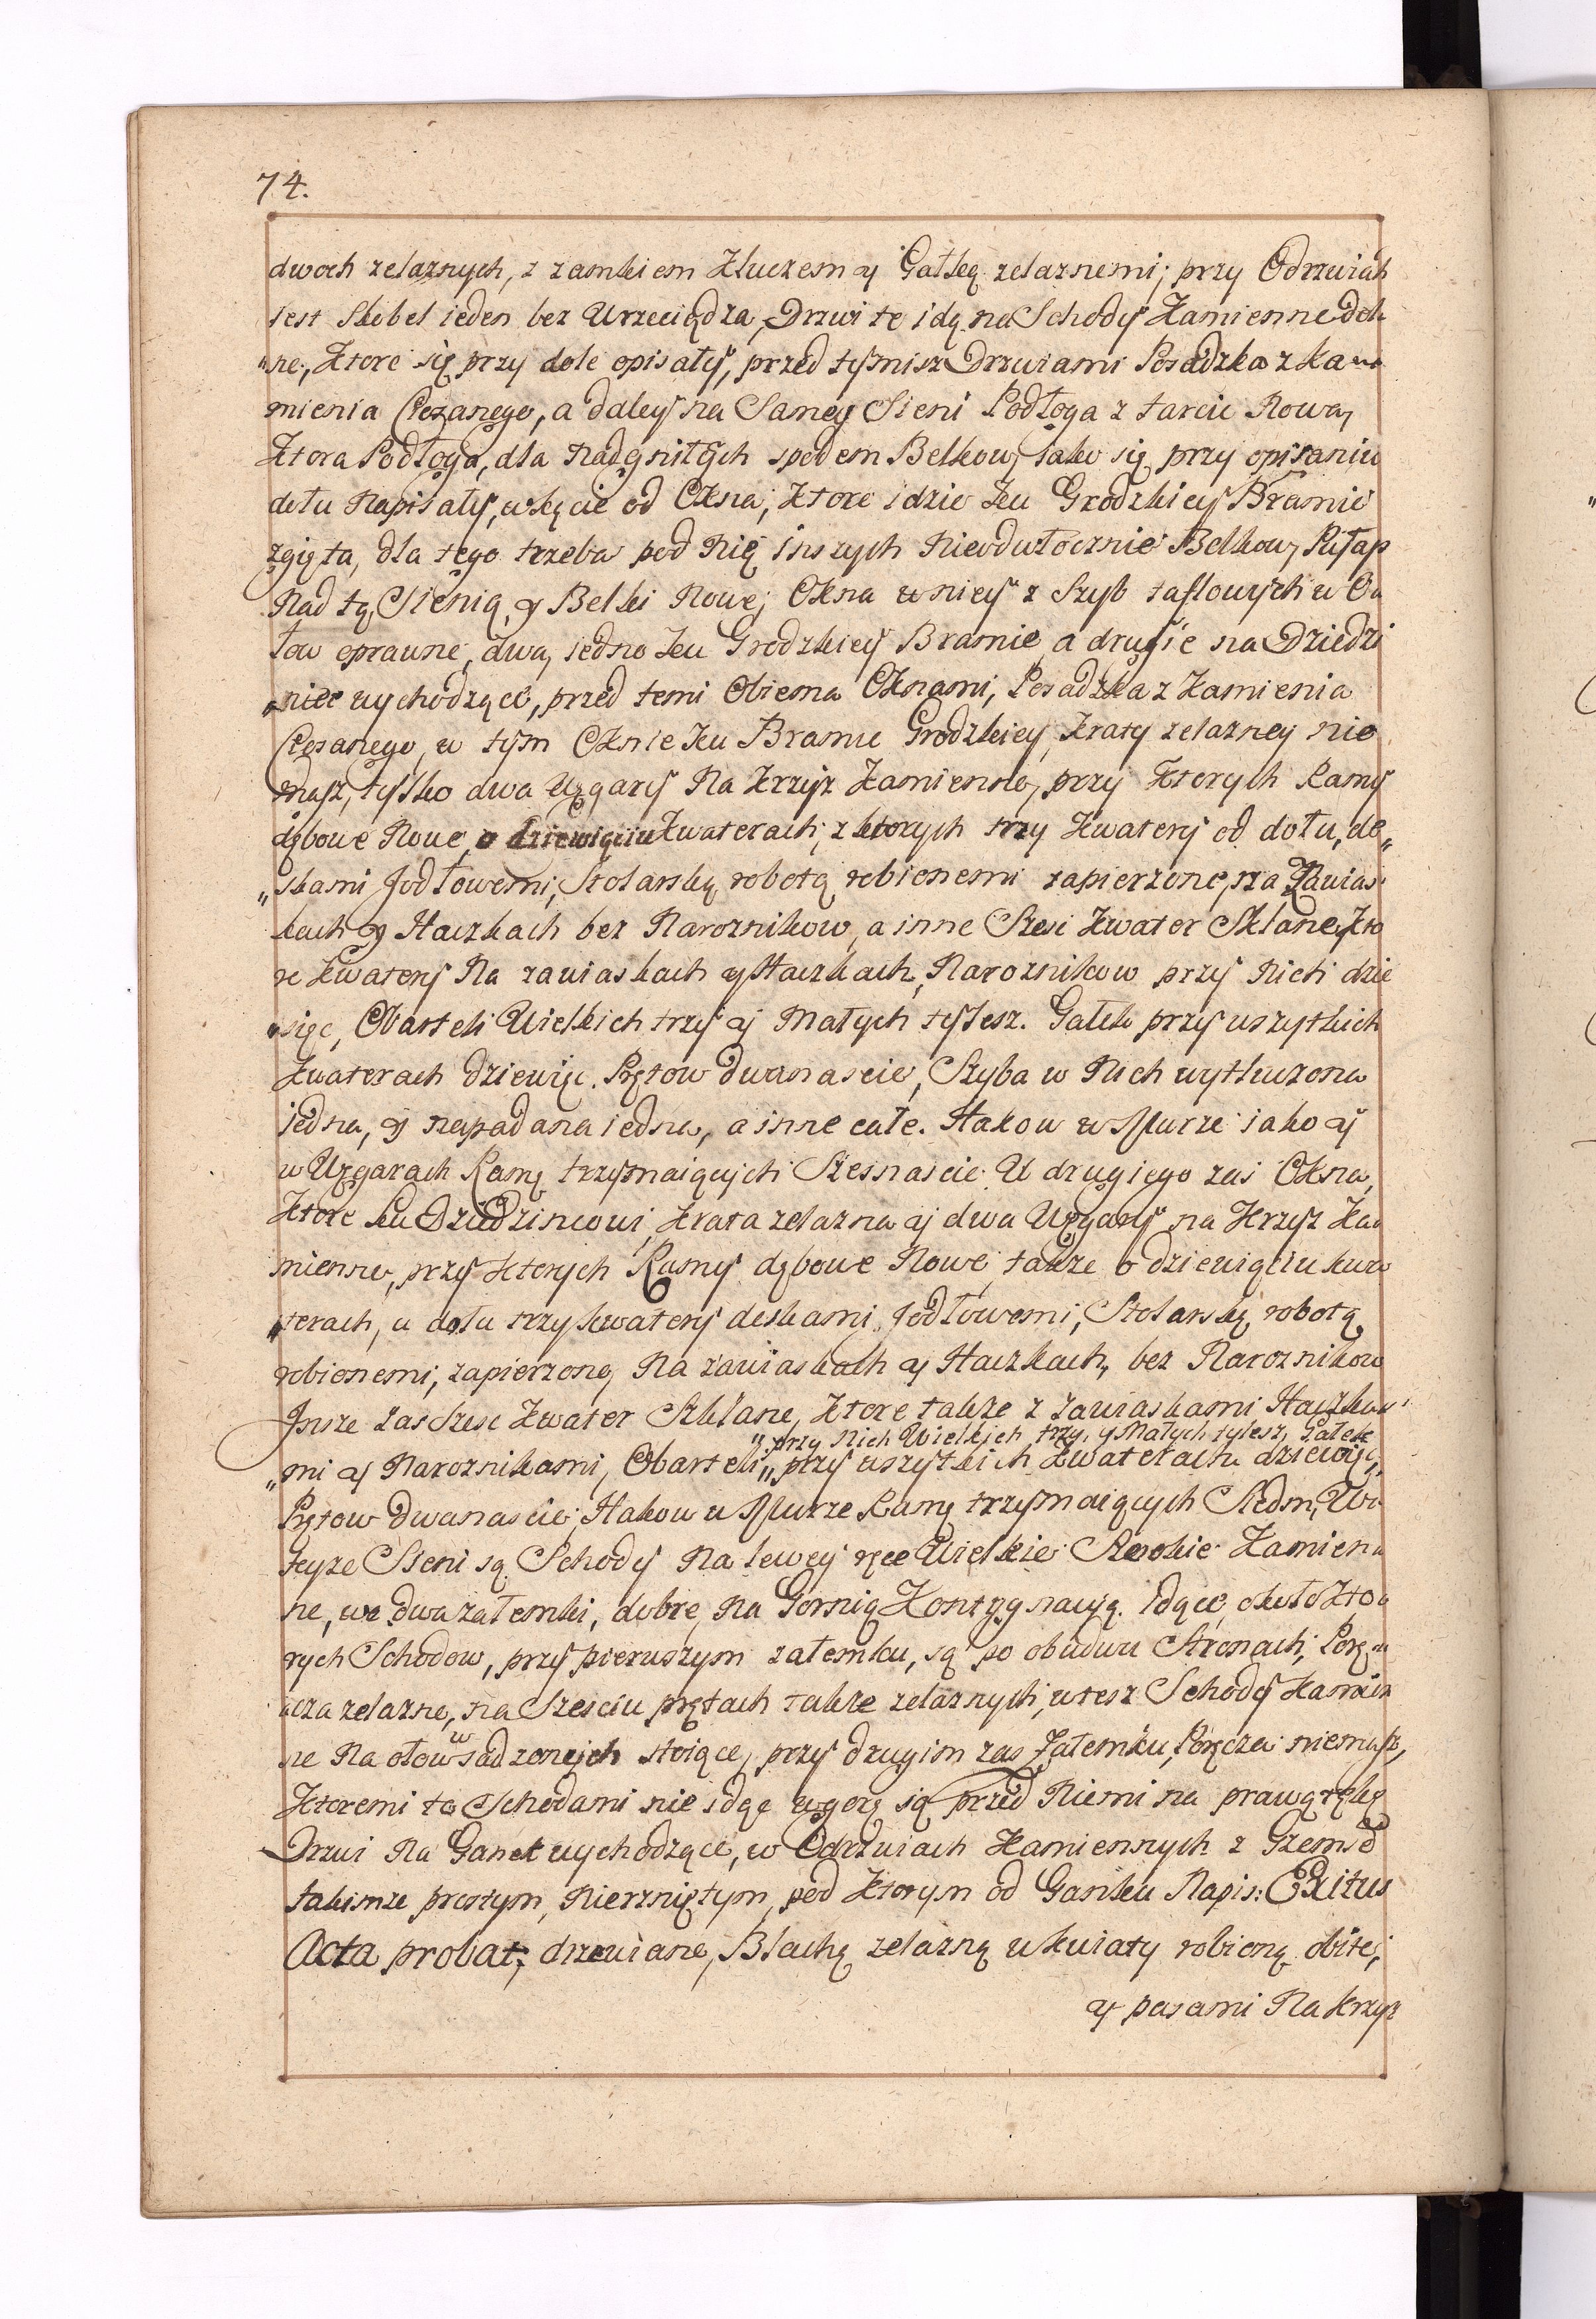 74.
dwoch zelaznych, z zamkiem Kluczem y Gałką zelaznemi; przy Odrzwiach
iest Skobel ieden bez Wrzeciądza, Drzwi te idą na Schody Kamienne dol„
„ne, Ktore się przy dole opisały, przed tymisz Drzwiami Posadzka z Ka„
mienia Ciezanego, a daley na Samey Sieni Podłoga z tarcic Nowa,
Ktora Podłoga, dla Nadgniłych spodem Belkow, iako się przy opisaniu
dołu Napisały, w kącie od Okna, Ktore idzie Ku Grodzkiey Bramie
zgięta, dla tego trzeba pod Nię inszych Nieodwłocznie Belkow, Pułap
Nad tą Sienią, y Belki Nowe; Okna w niey z Szyb taflowych w Oł
łow oprawne, dwa, iedno Ku Grodzkiey Bramie, a drugie na Dziedzi
„niec wychodzące, przed temi Obiema Oknami, Posadzka z Kamienia
Ciesanego, w tym Oknie Ku Bramie Grodzkiey, Kraty zelazney nie
masz, tylko dwa Uzgary Na Krzyz Kamienne, przy Ktorych Ramy
dębowe Nowe, o dziewięciu Kwaterach, z ktorych trzy Kwatery od dołu, de„
„skami Jodłowemi, Stolarską robotą robionemi zapierzone, na Zawias
kach y Haczkach bez Naroznikow, a inne Szesc Kwater Sklane, Kto
re Kwatery Na zawiaskach y Haczkach, Naroznikow przy Nich dzie
„sięc, Obarteli Wielkich trzy y Małych tylesz. Gałek przy wszytkich
Kwaterach dziewięc. Prętow dwanascie, Szyba w Nich wytłuczona
iedna, y napadana iedna, a inne całe. Hakow w Murze iako y
w Uzgarach Ramy trzymaiących Szesnascie. U drugiego zas Okna,
Ktore Ku Dziedzincowi, Krata zelazna y dwa Uzgary na Krzyz Ka„
mienne, przy Ktorych Ramy dębowe Nowe, takze o dziewięciu kwa
„terach, u dołu trzy kwatery deskami Jodłowemi, Stolarską robotą
robionemi, zapierzone, Na zawiaskach y Haczkach, bez Naroznikow
Insze zas Szesc Kwater Szklane, Ktore takze z zawiaskami Haczka„
„przy Nich Wielkich trzy, y Małych tylesz, Gałek
„mi y Naroznikami, Obarteli„ przy wszytkich Kwaterach dziewięc,
Prętow dwanascie, Hakow w Murze Ramy trzymaiących Siedm, W
teyze Sieni są Schody Na lewey ręce Wielkie Szerokie Kamien„
ne, we dwa załemki, dobre, Na Gornią Kontygnacyą Idące, około Kto„
rych Schodow, przy pierwszym załemku, są po obudwu Stronach, Porę„
cza zelazne, na Szesciu prętach takze zelaznych, w tesz Schody Kamien
w
ne Na ołow sadzonych stoiące, przy drugim zas Załemku, Poręcza niemasz,
Ktoremi to Schodami nie idąc w gorę są przed Niemi na prawą rękę
Drzwi Na Ganek wychodzące, w Odrzwiach Kamiennych z Gzemsē
takimze prostym, Nierzniętym, pod Ktorym od Ganku Napis: Exitus
Acta probat; drzewiane, Blachą zelazną w kwiaty robioną obite,
y pasami Na Krzyz